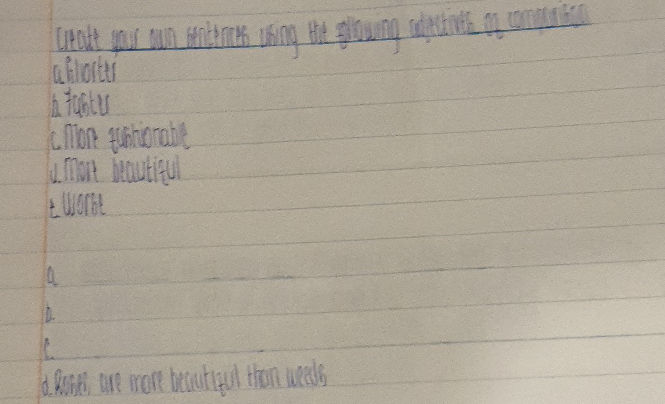 Create your own sentences using the following adjectives of comparison
a. Shorter
b. Faster
c. More fashionable
d. More beautiful
e. Worse
a.
b.
c.
d. Roses are more beautiful than weeds